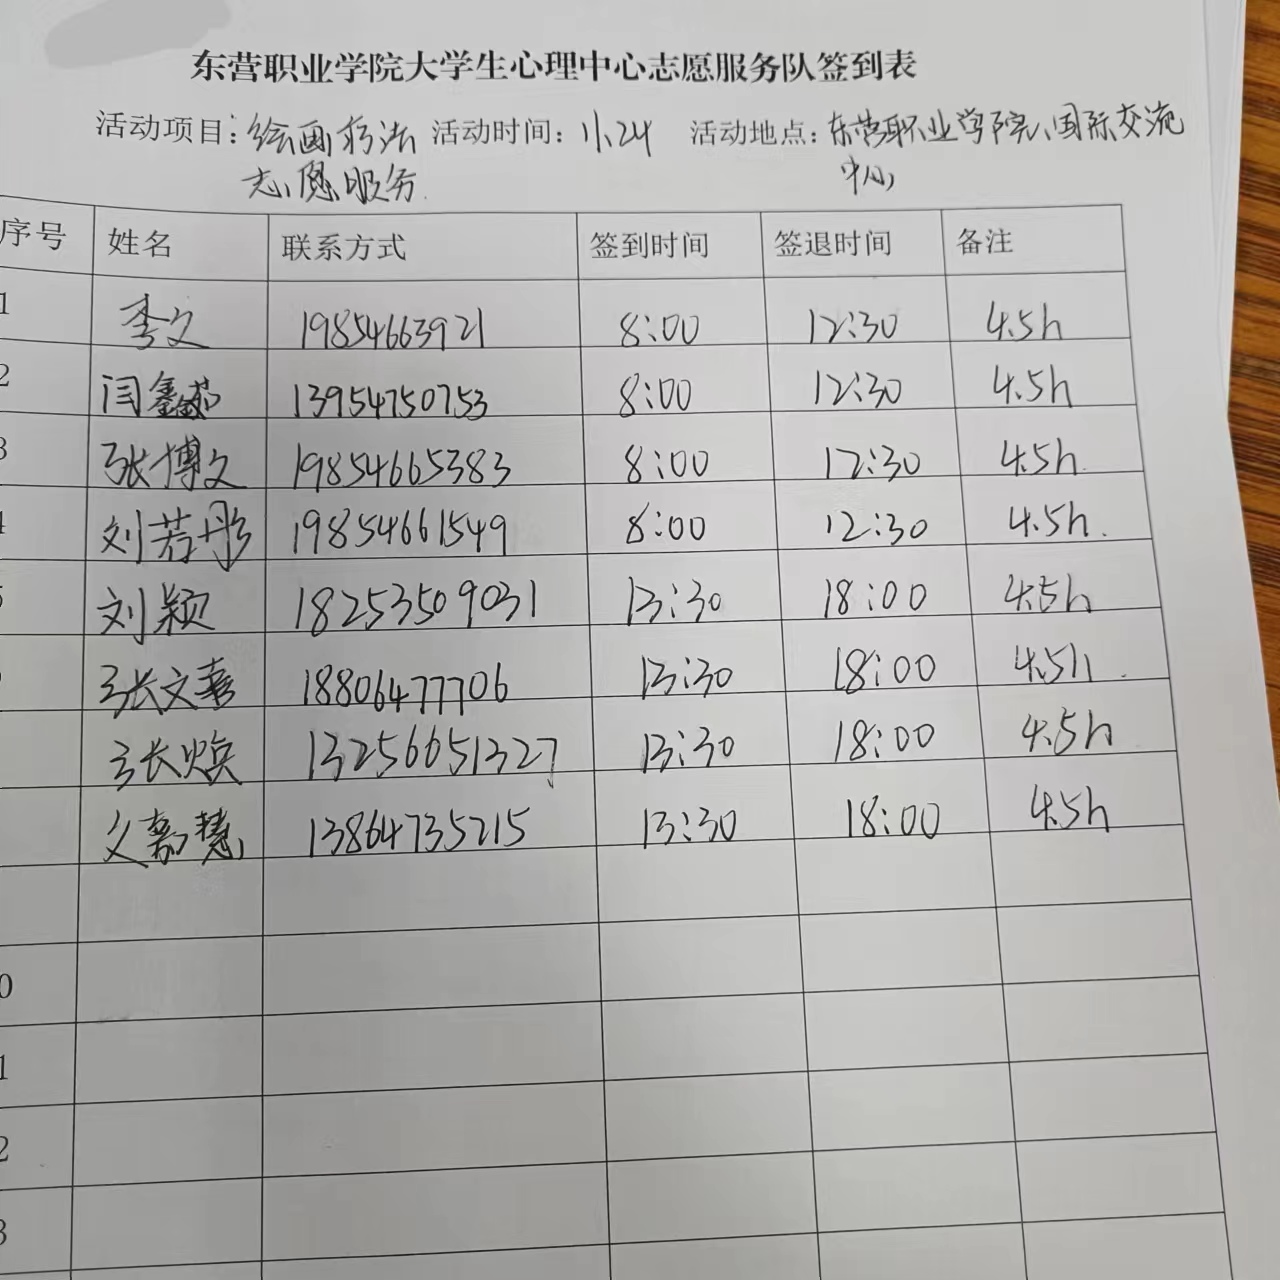 东营职业学院大学生心理中心志愿服务队签到表
活动项目：绘画疗法 活动时间：11.24 活动地点：东营职业学院、国际交流
志愿服务 中心
序号 姓名 联系方式 签到时间 签退时间 备注
1 李文 19854663921 8:00 12:30 4.5h
2 闫鑫茹 13954750753 8:00 12:30 4.5h
3 张博文 19854665383 8:00 12:30 4.5h
4 刘若彤 19854661549 8:00 12:30 4.5h.
5 刘颖 18253509031 13:30 18:00 4.5h
张文嘉 18806477706 13:30 18:00 4.5h.
张焕 13256651327 13:30 18:00 4.5h
嘉慧 13864735215 13:30 18:00 4.5h
0
1
2
3